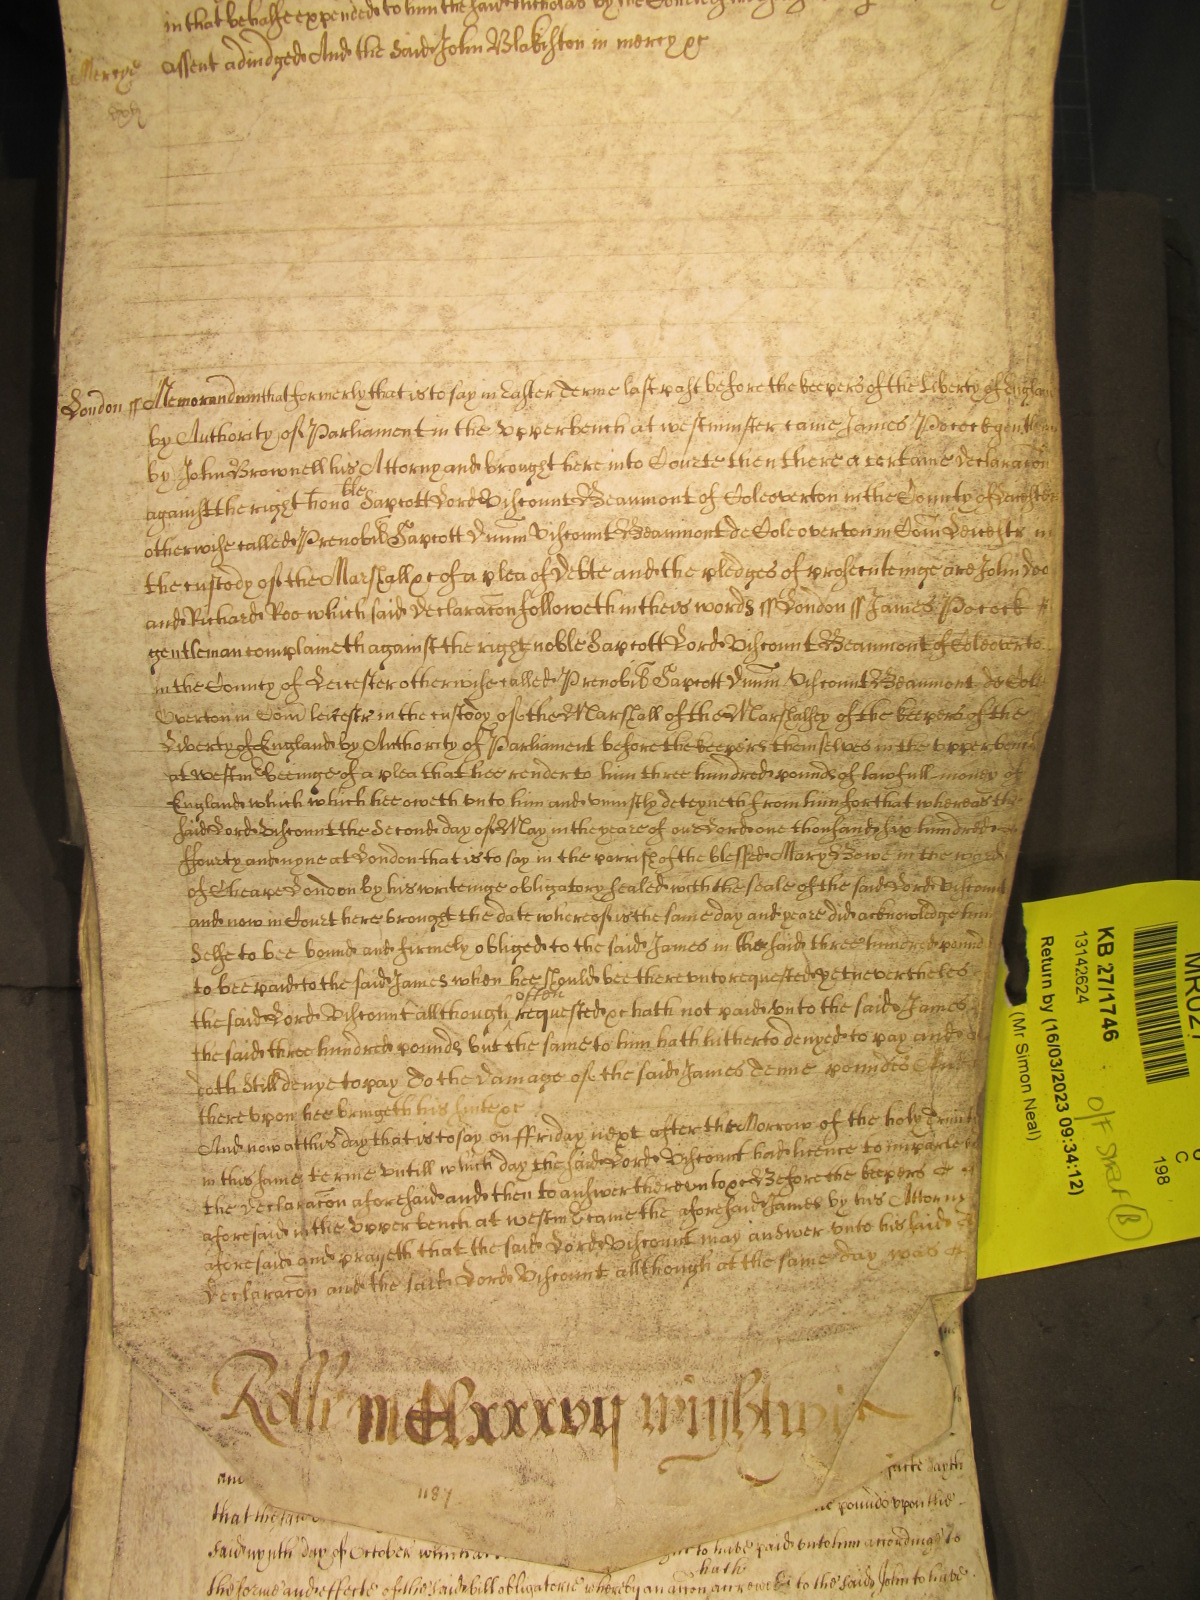 in that behalfe expended to him the said Nicholas by the Court
assent adiudged And the said John Blakiston in mercy &c
Mercye
London ss Memorandum that formerly that is to say in Easter Terme last past before the keepers of the Liberty of England
by Authority of Parliament in the upper bench at westminster came James Pocock gentleman
by John Brownell his Attorny and brought here into Courte then there a certaine declaracon
against the right honoble Sapcott Lord Viscount Beaumont of Coleoverton in the County of Leicester
otherwise called Prenobil Sapcott Dnum Viscount Beaumont de Coleoverton in Com Leicestr in
the custody of the Marshall &c of a plea of debte and the pledges of prosecuteinge are John Doo
and Richard Roo which said declaracon followeth in theis words ss London ss James Pocock
gentleman complaineth against the right noble Sapcott Lord Viscount Beaumont of Coleoverton
in the County of Leicester otherwise called Prenobil Sapcott Dnum Viscount Beaumont de Cole
Overton in Com leicestr in the custody of the Marshall of the Marshalsey of the keepers of the
Liberty of England by Authority of Parliament before the keepers themselves in the upper bench
at westmr beeinge of a plea that hee render to him three hundred pounds of lawfull money of
England which which hee oweth unto him and uniustly deteyneth from him for that whereas the
said Lord Viscount the Second day of May in the yeare of our Lord one thousand six hundred
ffourty and nyne at London that is to say in the parrish of the blessed Mary Bowe in the ward
of Cheape London by his writeinge obligatory sealed with the seale of the said Lord Viscount
and now in Court here brought the date whereof is the same day and yeare did acknowledge him
Selfe to bee bound and firmely obliged to the said James in the said three hundred pounds
to bee paid to the said James when hee should bee thereunto requested yet nevertheles
the said Lord Viscount allthough often requested &c hath not paid unto the said James
the said three hundred pounds but the same to him hath hitherto denyed to pay and
doth still denye to pay To the damage of the said James tenne poundes And
there upon hee bringeth his suite &c
And now at this day that is to say on ffriday next after the Morrow of the holy Trinity
in this same terme untill which day the said Lord Viscount had licence to imparle to
the declaracon aforesaid and then to answer thereunto &c Before the keepers &c
aforesaid in the upper bench at westmr came the aforesaid James by his Attorny
aforesaid and prayeth that the said Lord Viscount may answer unto his said
declaracon and the said Lord Viscount allthough at the same day was
Rolle mClxxxvij wightwick
1187
that the said
said nynth day of October
to have paid unto him according to
hath
the forme and effecte of the said bill obligatorie whereby an accon accrewed to the said John to have
pounds upon the
KB 27/1746
13142624
Return by (16/03/2023 09:34:12)
(Mr Simon Neal)
C
198
B